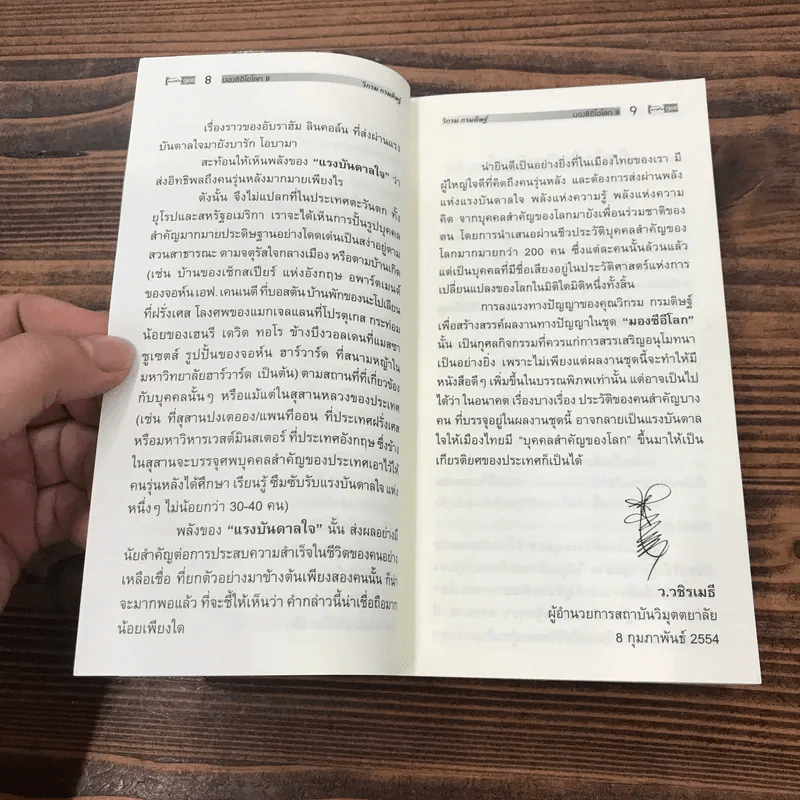 8 มองซีอีโอโลก 8 วิกรม กรมดิษฐ์
เรื่องราวของอับราฮัม ลินคอล์น ที่ส่งผ่านแรง
บันดาลใจมายังบารัก โอบามา
สะท้อนให้เห็นพลังของ "แรงบันดาลใจ" ว่า
ส่งอิทธิพลถึงคนรุ่นหลังมากมายเพียงไร
ดังนั้น จึงไม่แปลกที่ในประเทศตะวันตก ทั้ง
ยุโรปและสหรัฐอเมริกา เราจะได้เห็นการปั้นรูปบุคคล
สำคัญมากมายประดิษฐานอย่างโดดเด่นเป็นสง่าอยู่ตาม
สวนสาธารณะ ตามจตุรัสใจกลางเมือง หรือตามบ้านเกิด
(เช่น บ้านของเช็กสเปียร์ แห่งอังกฤษ อพาร์ตเมนต์
ของจอห์น เอฟ. เคนเนดี ที่บอสตัน บ้านพักของนะโปเลียน
ที่ฝรั่งเศส โลงศพของแมกเจลแลนที่โปรตุเกส กระท่อม
น้อยของเฮนรี เดวิด ทอโร ข้างบึงวอลเดนที่แมสซา
ชูเซตส์ รูปปั้นของจอห์น ฮาร์วาร์ด ที่สนามหญ้าใน
มหาวิทยาลัยฮาร์วาร์ด เป็นต้น) ตามสถานที่ที่เกี่ยวข้อง
กับบุคคลนั้นๆ หรือแม้แต่ในสุสานหลวงของประเทศ
(เช่น ที่สุสานปงเตออง/แพนทีออน ที่ประเทศฝรั่งเศส
หรือมหาวิหารเวสต์มินสเตอร์ ที่ประเทศอังกฤษ ซึ่งข้าง
ในสุสานจะบรรจุศพบุคคลสำคัญของประเทศเอาไว้ให้
คนรุ่นหลังได้ศึกษา เรียนรู้ ซึมซับรับแรงบันดาลใจ แห่ง
หนึ่งๆ ไม่น้อยกว่า 30-40 คน)
พลังของ "แรงบันดาลใจ" นั้น ส่งผลอย่างมี
นัยสำคัญต่อการประสบความสำเร็จในชีวิตของคนอย่าง
เหลือเชื่อ ที่ยกตัวอย่างมาข้างต้นเพียงสองคนนั้น ก็น่า
จะมากพอแล้ว ที่จะชี้ให้เห็นว่า คำกล่าวนี้น่าเชื่อถือมาก
น้อยเพียงใด
วิกรม กรมดิษฐ์ มองซีอีโอโลก 8 9
น่ายินดีเป็นอย่างยิ่งที่ในเมืองไทยของเรา มี
ผู้ใหญ่ใจดีที่คิดถึงคนรุ่นหลัง และต้องการส่งผ่านพลัง
แห่งแรงบันดาลใจ พลังแห่งความรู้ พลังแห่งความ
คิด จากบุคคลสำคัญของโลกมายังเพื่อนร่วมชาติของ
ตน โดยการนำเสนอผ่านชีวประวัติบุคคลสำคัญของ
โลกมากมายกว่า 200 คน ซึ่งแต่ละคนนั้นล้วนแล้ว
แต่เป็นบุคคลที่มีชื่อเสียงอยู่ในประวัติศาสตร์แห่งการ
เปลี่ยนแปลงของโลกในมิติใดมิติหนึ่งทั้งสิ้น
การลงแรงทางปัญญาของคุณวิกรม กรมดิษฐ์
เพื่อสร้างสรรค์ผลงานทางปัญญาในชุด "มองซีอีโลก"
นั้น เป็นกุศลกิจกรรมที่ควรแก่การสรรเสริญอนุโมทนา
เป็นอย่างยิ่ง เพราะไม่เพียงแต่ผลงานชุดนี้จะทำให้มี
หนังสือดีๆ เพิ่มขึ้นในบรรณพิภพเท่านั้น แต่อาจเป็นไป
ได้ว่า ในอนาคต เรื่องบางเรื่อง ประวัติของคนสำคัญบาง
คน ที่บรรจุอยู่ในผลงานชุดนี้ อาจกลายเป็นแรงบันดาล
ใจให้เมืองไทยมี "บุคคลสำคัญของโลก" ขึ้นมาให้เป็น
เกียรติยศของประเทศก็เป็นได้
ว.วชิรเมธี
ผู้อำนวยการสถาบันวิมุตตยาลัย
8 กุมภาพันธ์ 2554